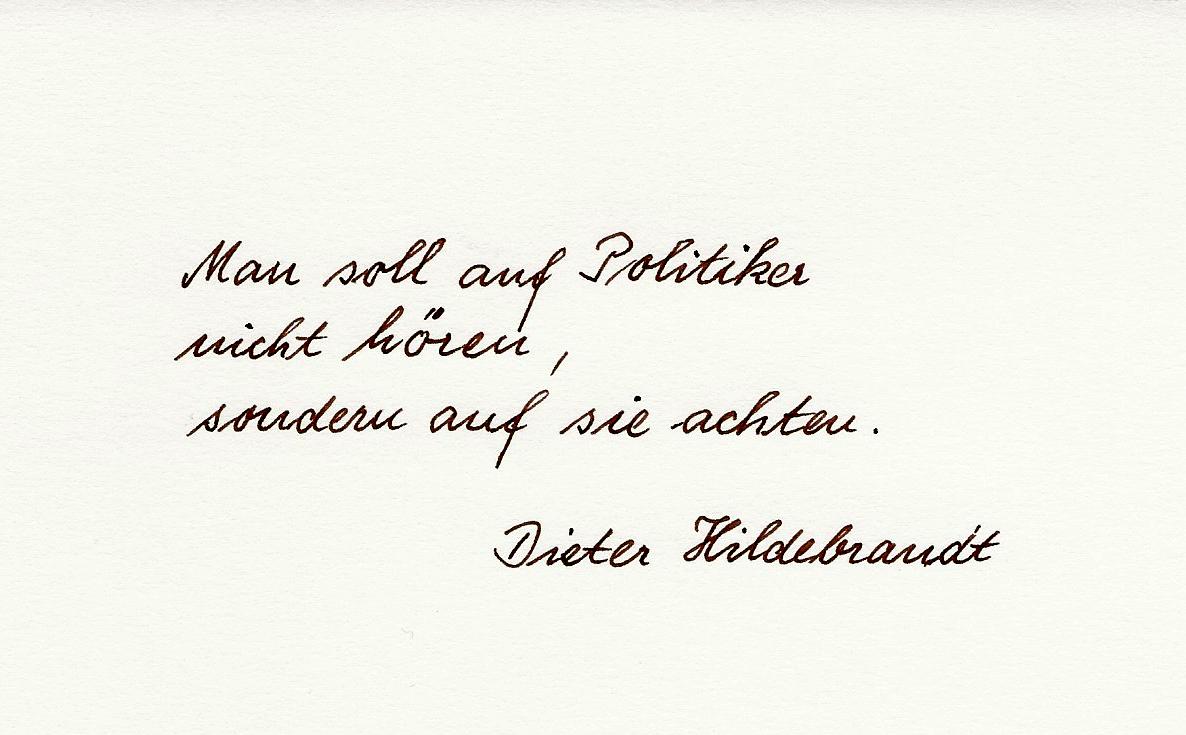 Man soll auf Politiker
nicht hören,
sondern auf sie achten.
Dieter Hildebrandt